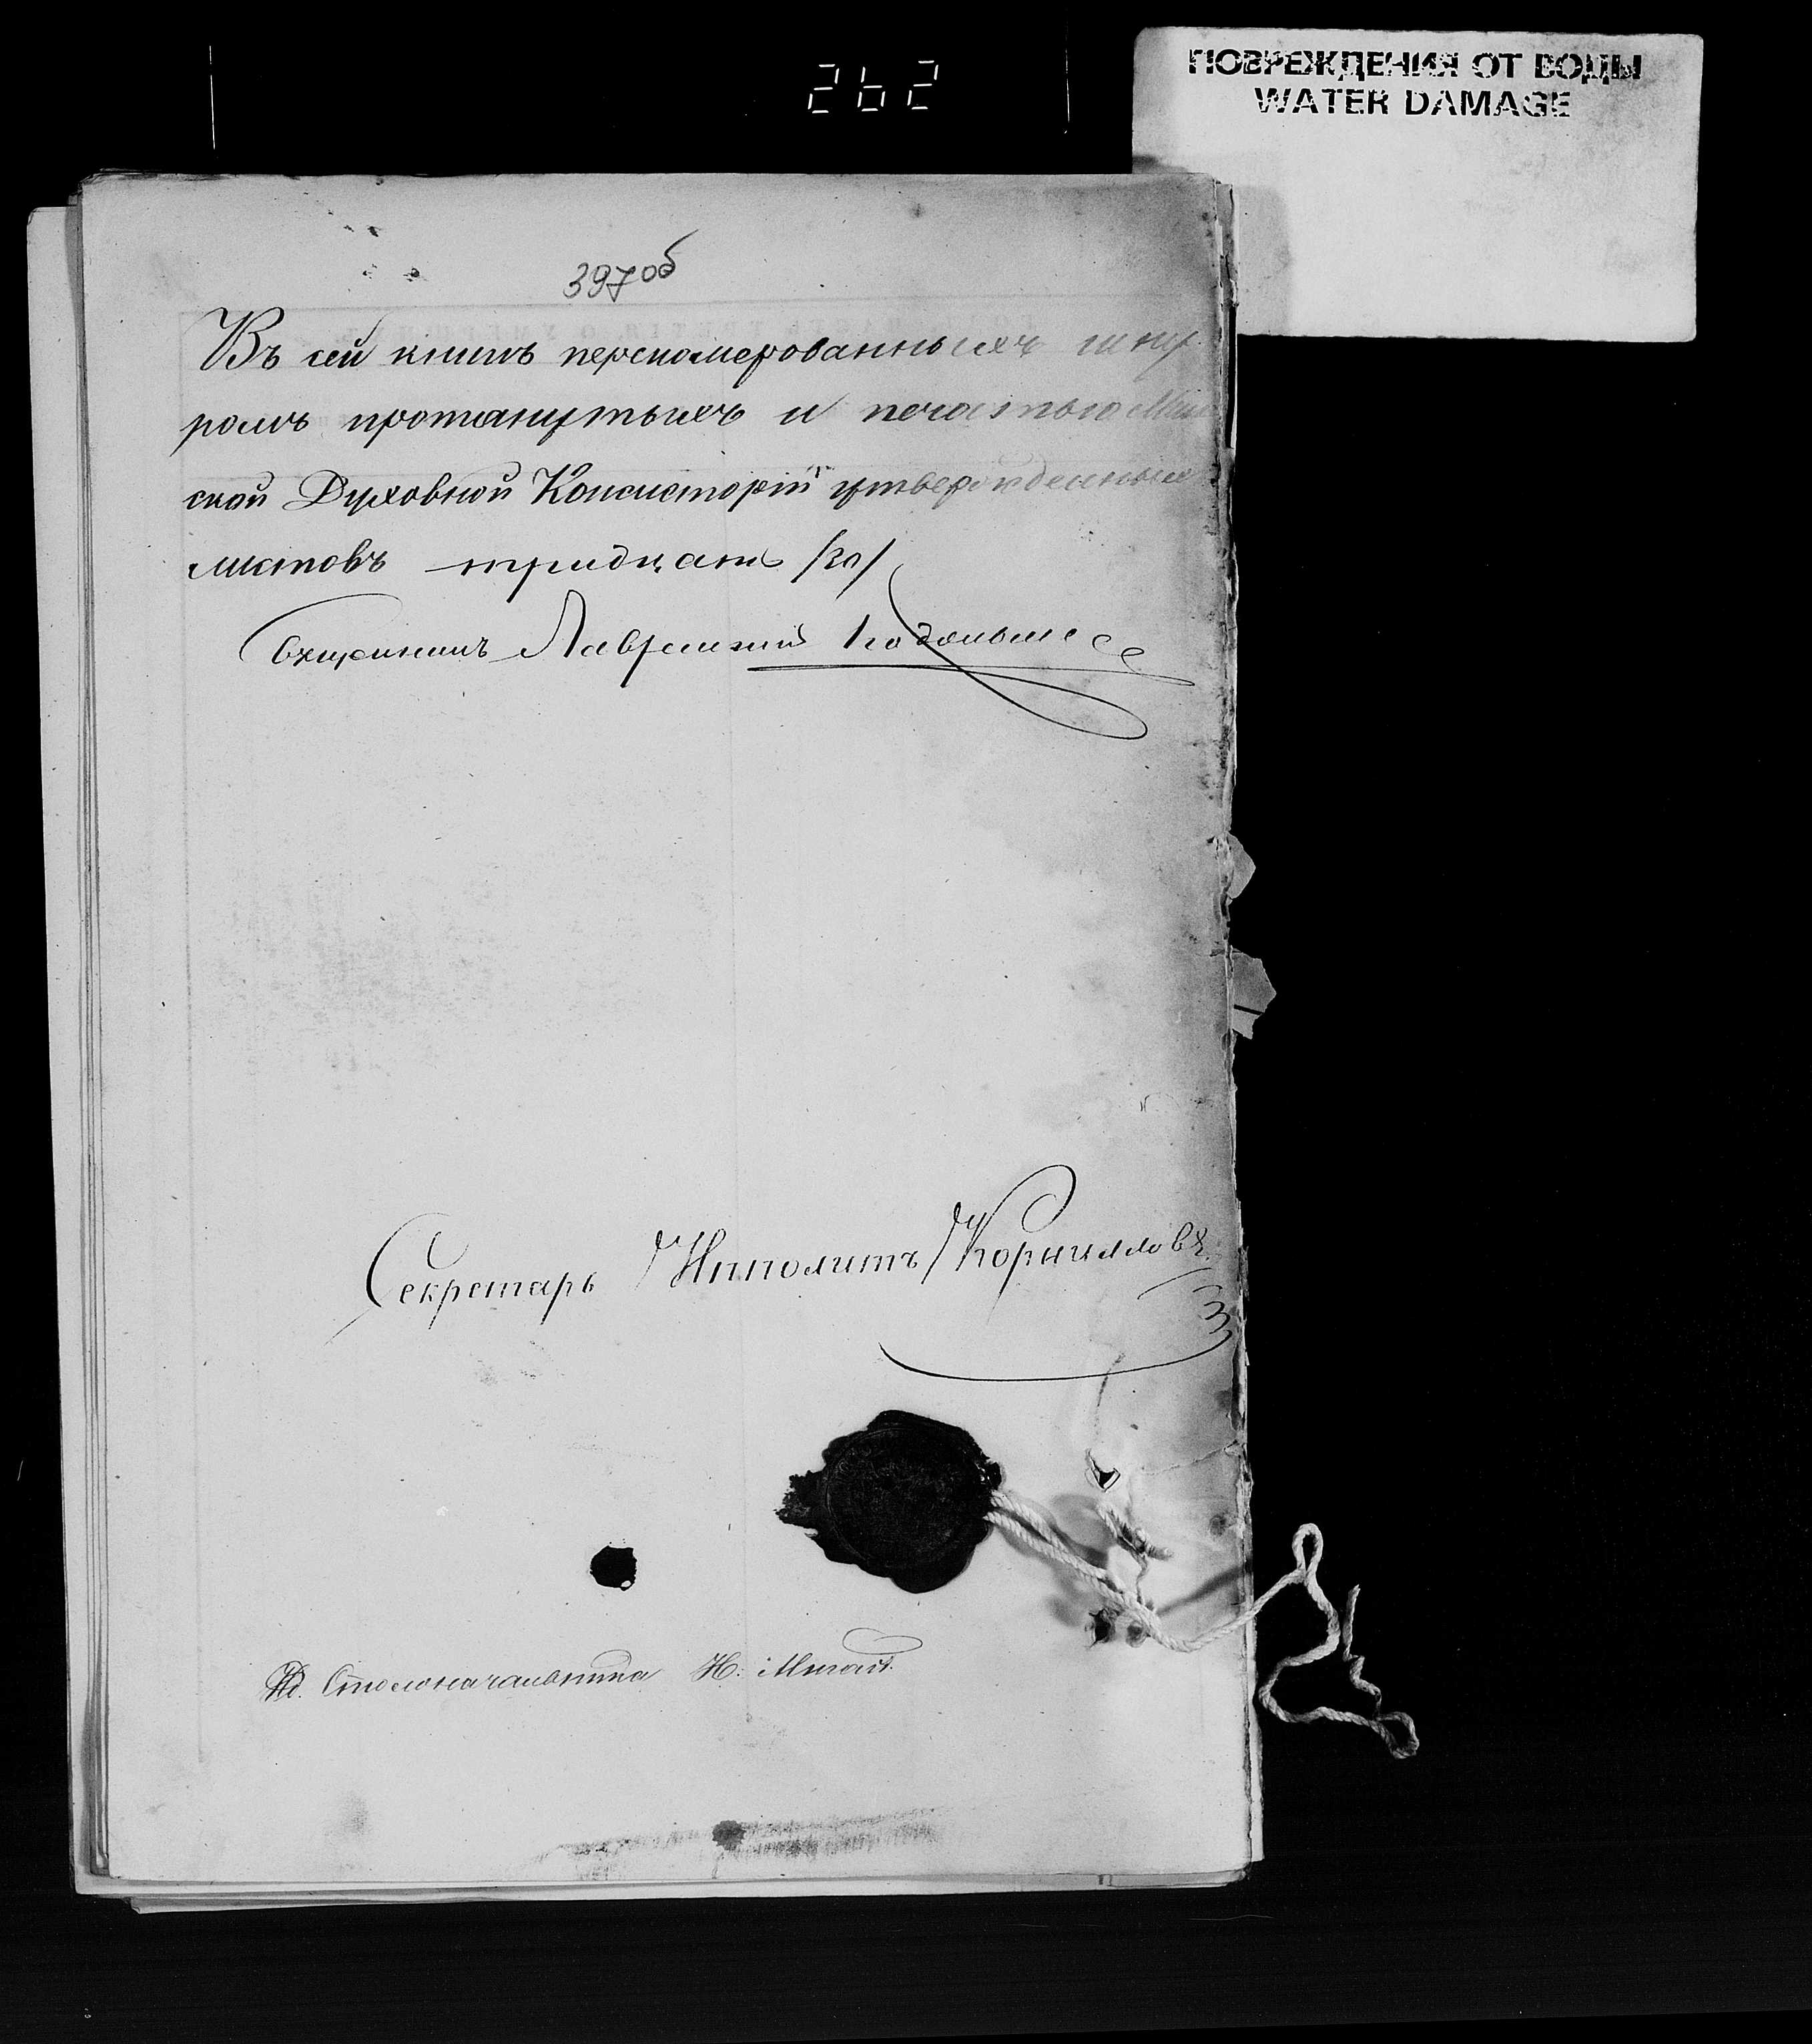 262
ПОВРЕЖДЕНИЯ ОТ ВОДЫ
WATER DAMAGE
397об
Въ сей книгѣ переномерованныхъ шну
ромъ протянутыхъ и печатью Мин
ской Духовной Консисторіи утвержденныхъ
листовъ тридцать /30/
Священникъ Лаврентій
Секретарь Ипполитъ Корниловъ.
Столоначальника Н.